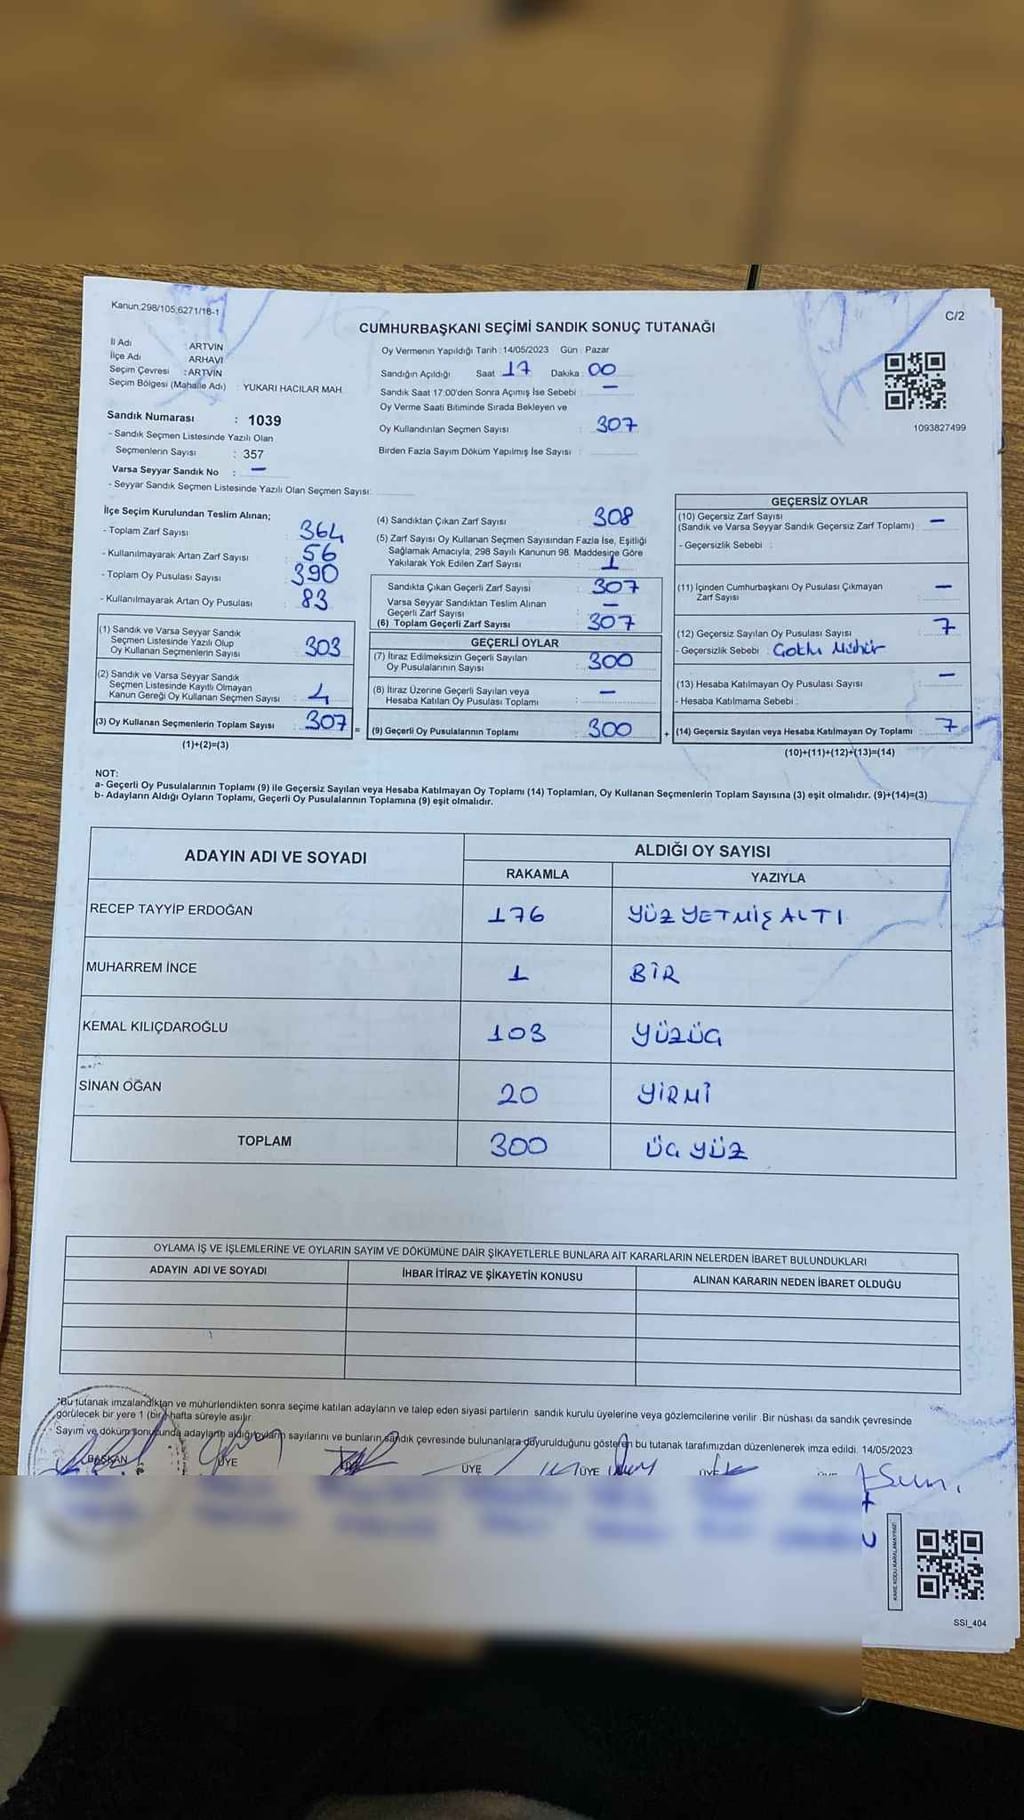 Kanun:298/105,6271/16-1
C/2
CUMHURBAŞKANI SEÇİMİ SANDIK SONUÇ TUTANAĞI
İl Adı : ARTVİN
İlçe Adı : ARHAVİ
Seçim Çevresi : ARTVİN
Seçim Bölgesi (Mahalle Adı) : YUKARI HACILAR MAH.
Sandık Numarası : 1039
- Sandık Seçmen Listesinde Yazılı Olan
Seçmenlerin Sayısı : 357
Varsa Seyyar Sandık No : —
- Seyyar Sandık Seçmen Listesinde Yazılı Olan Seçmen Sayısı:
Oy Vermenin Yapıldığı Tarih : 14/05/2023 Gün : Pazar
Sandığın Açıldığı Saat 17 Dakika : 00
Sandık Saat 17:00'den Sonra Açımış İse Sebebi : —
Oy Verme Saati Bitiminde Sırada Bekleyen ve
Oy Kullandırılan Seçmen Sayısı : 307
Birden Fazla Sayım Döküm Yapılmış İse Sayısı :
1093827499
İlçe Seçim Kurulundan Teslim Alınan;
- Toplam Zarf Sayısı : 364
- Kullanılmayarak Artan Zarf Sayısı : 56
- Toplam Oy Pusulası Sayısı : 390
- Kullanılmayarak Artan Oy Pusulası : 83
(1) Sandık ve Varsa Seyyar Sandık
Seçmen Listesinde Yazılı Olup
Oy Kullanan Seçmenlerin Sayısı : 303
(2) Sandık ve Varsa Seyyar Sandık
Seçmen Listesinde Kayıtlı Olmayan
Kanun Gereği Oy Kullanan Seçmen Sayısı : 4
(3) Oy Kullanan Seçmenlerin Toplam Sayısı : 307
(1)+(2)=(3)
(4) Sandıktan Çıkan Zarf Sayısı : 308
(5) Zarf Sayısı Oy Kullanan Seçmen Sayısından Fazla İse, Eşitliği
Sağlamak Amacıyla, 298 Sayılı Kanunun 98. Maddesine Göre
Yakılarak Yok Edilen Zarf Sayısı : 1
Sandıkta Çıkan Geçerli Zarf Sayısı : 307
Varsa Seyyar Sandıktan Teslim Alınan
Geçerli Zarf Sayısı : —
(6) Toplam Geçerli Zarf Sayısı : 307
GEÇERLİ OYLAR
(7) İtiraz Edilmeksizin Geçerli Sayılan
Oy Pusulalarının Sayısı : 300
(8) İtiraz Üzerine Geçerli Sayılan veya
Hesaba Katılan Oy Pusulası Toplamı : —
= (9) Geçerli Oy Pusulalarının Toplamı : 300
GEÇERSİZ OYLAR
(10) Geçersiz Zarf Sayısı
(Sandık ve Varsa Seyyar Sandık Geçersiz Zarf Toplamı) : —
- Geçersizlik Sebebi :
(11) İçinden Cumhurbaşkanı Oy Pusulası Çıkmayan
Zarf Sayısı : —
(12) Geçersiz Sayılan Oy Pusulası Sayısı : 7
- Geçersizlik Sebebi : Çoklu Mühür
(13) Hesaba Katılmayan Oy Pusulası Sayısı : —
- Hesaba Katılmama Sebebi :
+ (14) Geçersiz Sayılan veya Hesaba Katılmayan Oy Toplamı : 7
(10)+(11)+(12)+(13)=(14)
NOT:
a- Geçerli Oy Pusulalarının Toplamı (9) ile Geçersiz Sayılan veya Hesaba Katılmayan Oy Toplamı (14) Toplamları, Oy Kullanan Seçmenlerin Toplam Sayısına (3) eşit olmalıdır. (9)+(14)=(3)
b- Adayların Aldığı Oyların Toplamı, Geçerli Oy Pusulalarının Toplamına (9) eşit olmalıdır.
ADAYIN ADI VE SOYADI ALDIĞI OY SAYISI
RAKAMLA YAZIYLA
RECEP TAYYİP ERDOĞAN 176 YÜZ YETMİŞ ALTI
MUHARREM İNCE 1 BİR
KEMAL KILIÇDAROĞLU 103 YÜZÜÇ
SİNAN OĞAN 20 YİRMİ
TOPLAM 300 ÜÇ YÜZ
OYLAMA İŞ VE İŞLEMLERİNE VE OYLARIN SAYIM VE DÖKÜMÜNE DAİR ŞİKAYETLERLE BUNLARA AİT KARARLARIN NELERDEN İBARET BULUNDUKLARI
ADAYIN ADI VE SOYADI İHBAR İTİRAZ VE ŞİKAYETİN KONUSU ALINAN KARARIN NEDEN İBARET OLDUĞU
*Bu tutanak imzalandıktan ve mühürlendikten sonra seçime katılan adayların ve talep eden siyasi partilerin sandık kurulu üyelerine veya gözlemcilerine verilir. Bir nüshası da sandık çevresinde
görülecek bir yere 1 (bir) hafta süreyle asılır.
Sayım ve döküm sonucunda adayların aldığı oyların sayılarını ve bunların sandık çevresinde bulunanlara duyurulduğunu gösteren bu tutanak tarafımızdan düzenlenerek imza edildi. 14/05/2023
BAŞKAN ÜYE ÜYE ÜYE
SSI_404